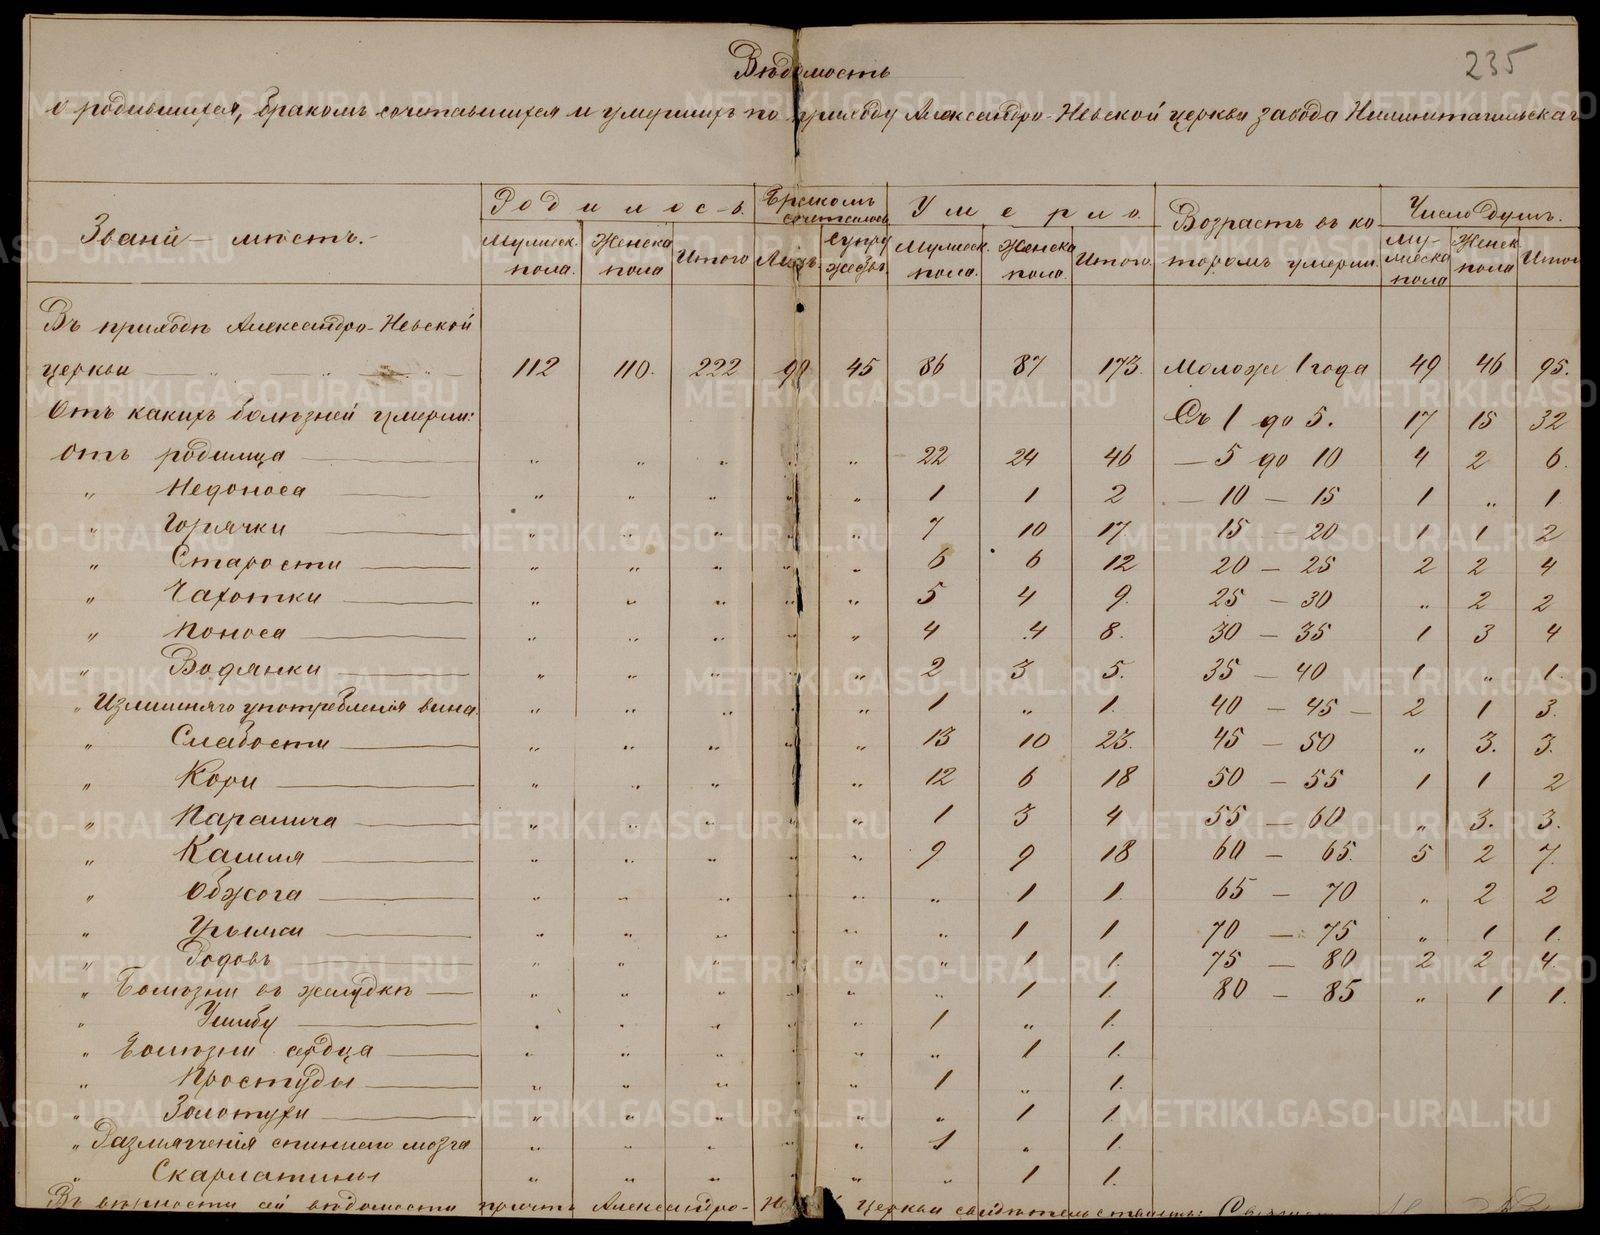 235
Вѣдомость
о родившихся, бракомъ сочетавшихся и умершихъ по приходу Александро-Невской церкви завода Нижнетагильскаго
Званіе мѣстъ.
Родилось.
Бракомъ сочеталось
Умерло.
Возрастъ въ которомъ умерли.
Число душъ.
Мужеск. пола. Женска пола Итого Лицъ. Супружествъ. Мужеск. пола. Женска пола. Итого. Мужеска пола Женск. пола Итого
Въ приходѣ Александро-Невской
церкви 112 110. 222 90 45 86 87 173. Моложе 1 года 49 46 95.
Отъ какихъ болѣзней умерли: Съ 1 до 5. 17 15 32
Отъ родимца „ „ „ „ „ 22 24 46 — 5 до 10 4 2 6.
„ Недоноса „ „ „ „ „ 1 1 2 — 10 — 15 1 „ 1.
„ Горячки „ „ „ „ „ 7 10 17 15 — 20 1 1 2
„ Старости „ „ „ „ „ 6 6 12 20 — 25 2 2 4
„ Чахотки „ „ „ „ „ 5 4 9. 25 — 30 „ 2 2
„ Поноса „ „ „ „ „ 4 4 8. 30 — 35 1 3 4
„ Водянки „ „ „ „ „ 2 3 5. 35 — 40 1 „ 1.
„ Излишняго употребленія вина. „ „ „ „ „ 1 „ 1. 40 — 45 — 2 1 3.
„ Слабости „ „ „ „ „ 13 10 23. 45 — 50 „ 3. 3.
„ Кори „ „ „ „ „ 12 6 18 50 — 55 1 1 2
„ Паралича „ „ „ „ „ 1 3 4 55 — 60 „ 3. 3.
„ Кашля „ „ „ „ „ 9 9 18 60 — 65. 5 2 7.
„ Обжога „ „ „ „ „ „ 1 1. 65 — 70 „ 2 2
„ Грыжи „ „ „ „ „ „ 1 1 70 — 75 „ 1 1.
„ Родовъ „ „ „ „ „ „ 1 1. 75 — 80 2 2 4.
„ Болѣзни въ желудкѣ „ „ „ „ „ „ 1 1. 80 — 85 „ 1 1.
„ Ушибу „ „ „ „ „ 1 „ 1.
„ Болѣзни сердца „ „ „ „ „ „ 1 1.
„ Простуды „ „ „ „ „ 1 „ 1.
„ Золотухи „ „ „ „ „ „ 1 1.
„ Размягченія спиннаго мозга „ „ „ „ „ 1 „ 1.
„ Скарлатины „ „ „ „ „ „ 1 1.
Въ вѣрности сей вѣдомости причтъ Александро-Н церкви свидѣтельствуетъ:
METRIKI.GASO-URAL.RU